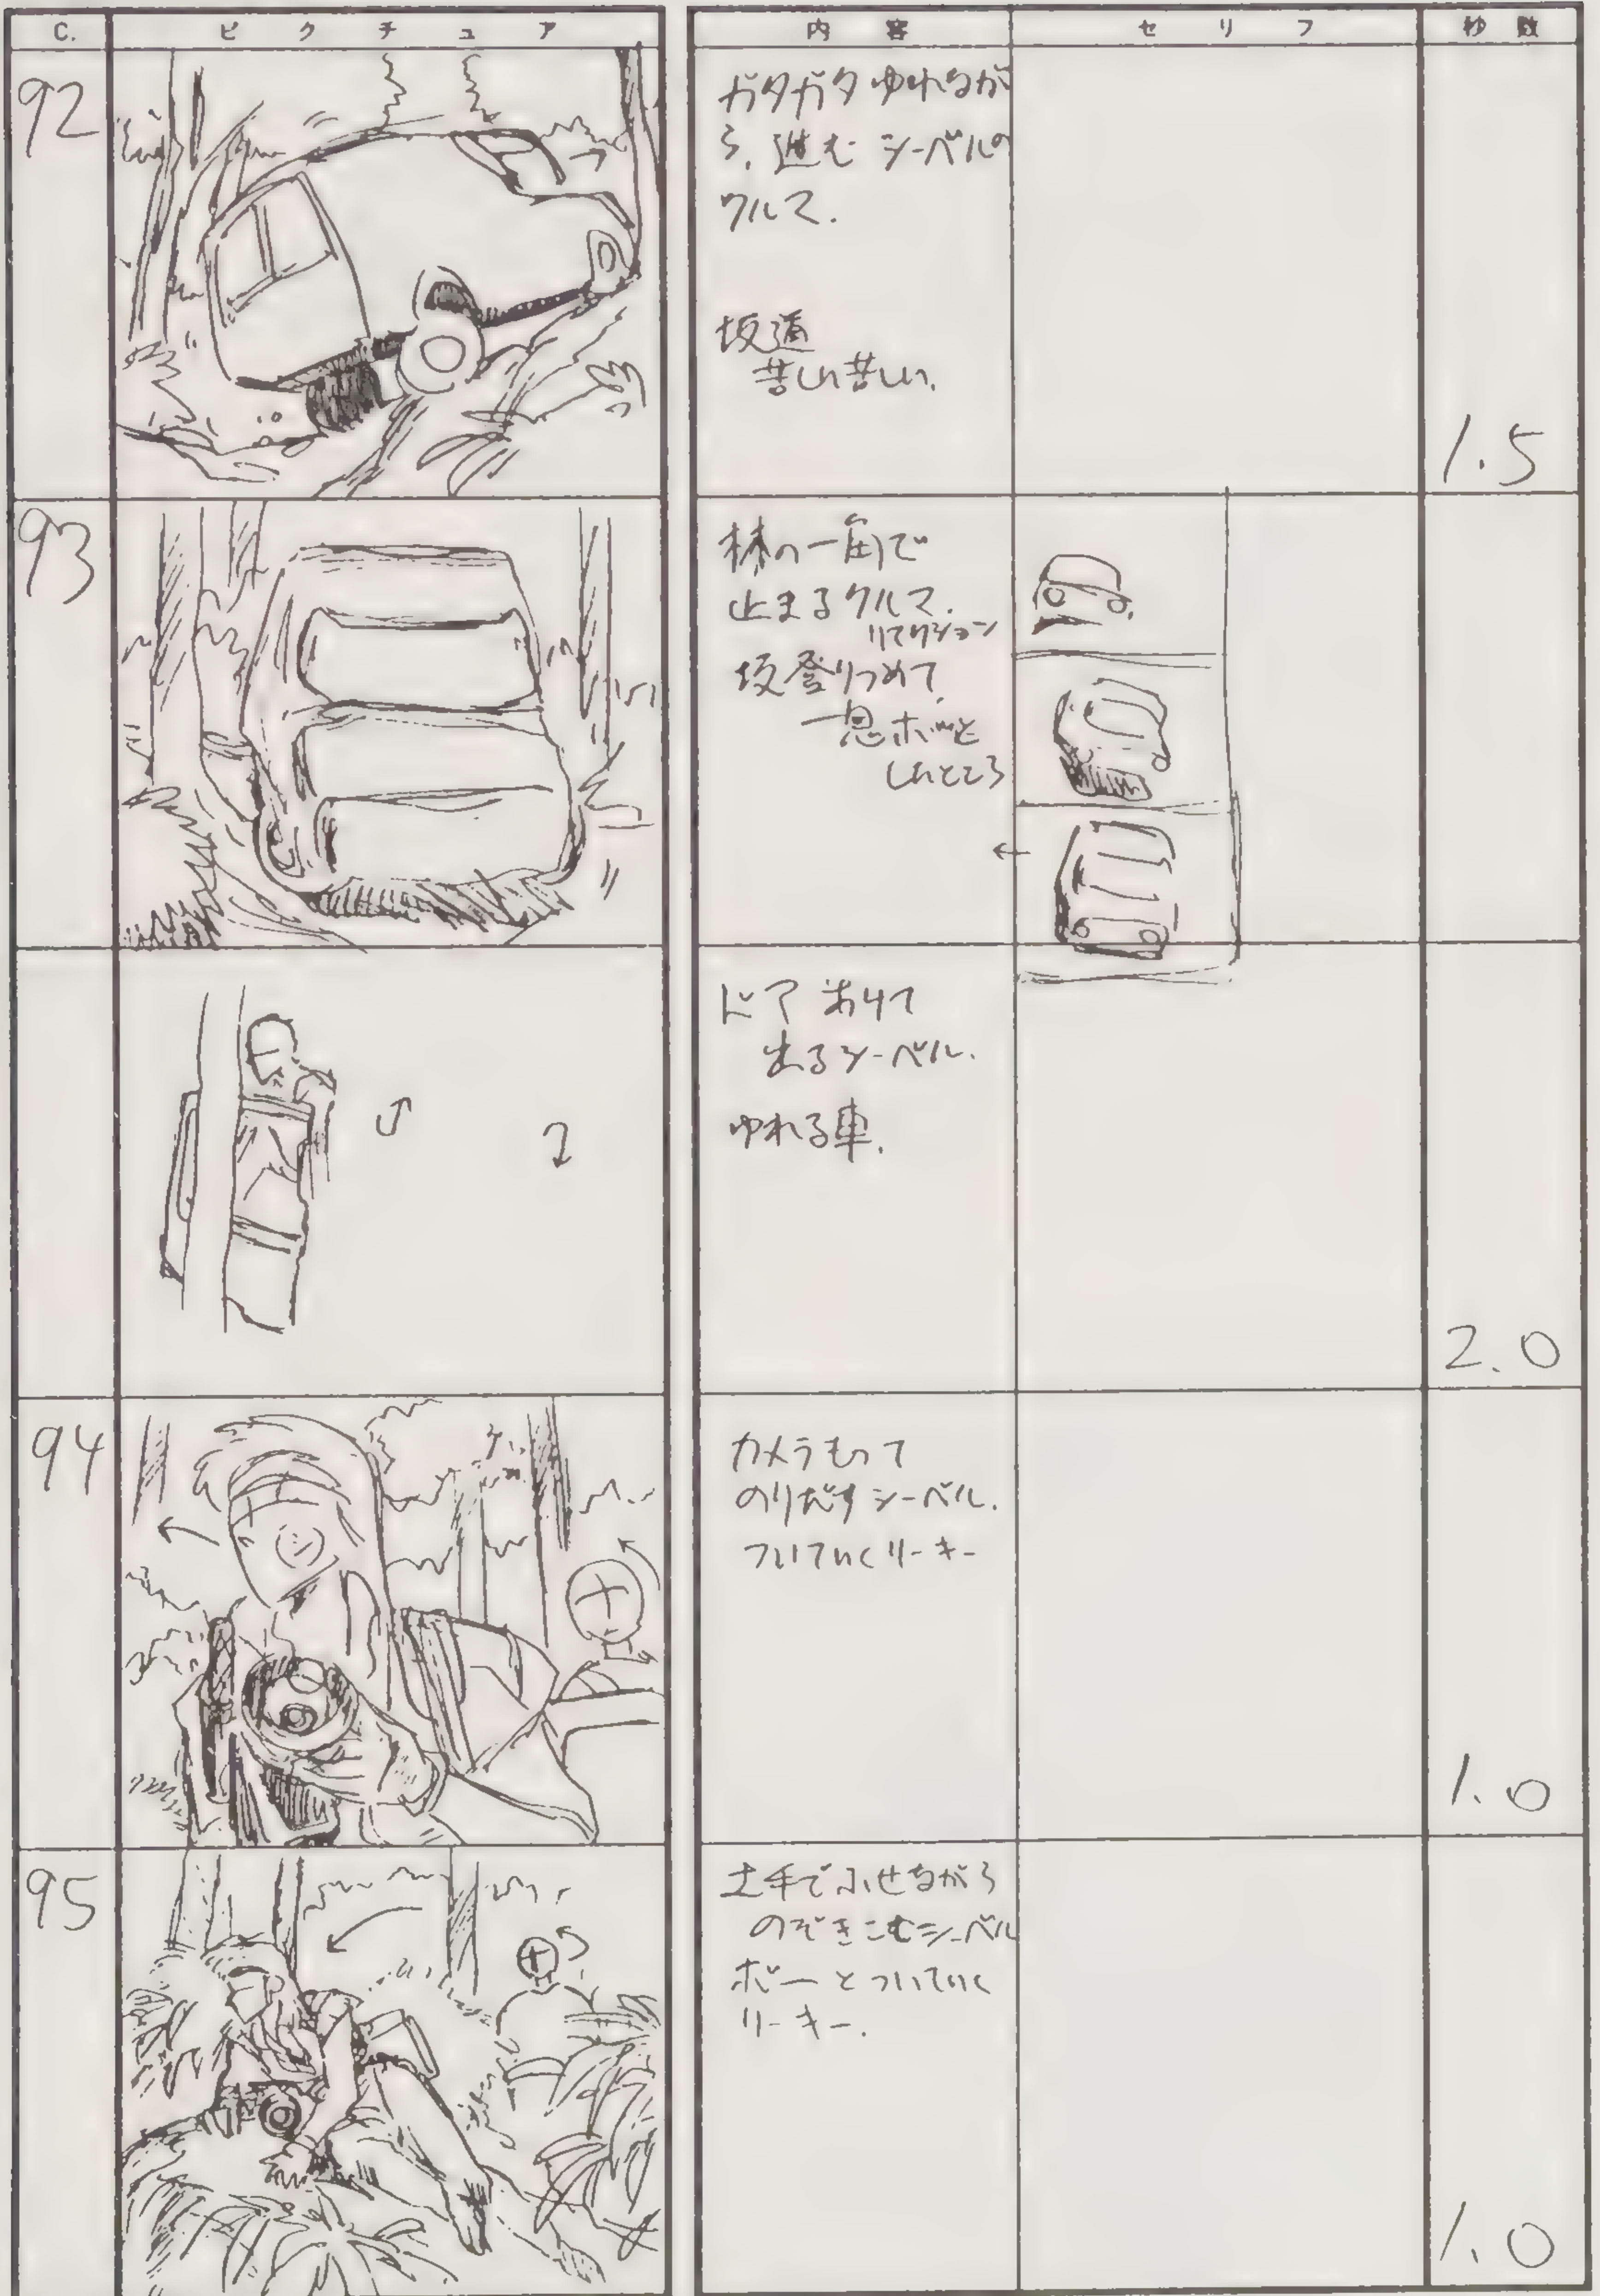 C.
ピクチュア
内容
セリフ
秒数
92
ガタガタゆれなが
ら、進むシーベルの
クルマ.
坂道
苦しい苦しい.
1.5
93
林の一角で
止まるクルマ.
リアクション
坂登りつめて、
一息ホッと
したところ
ドアあけて
出るシーベル.
ゆれる車.
2.0
94
カメラもって
のりだすシーベル.
ついていくリーキー
1.0
95
土手でふせながら
のぞきこむシーベル
ボーとついていく
リーキー.
1.0